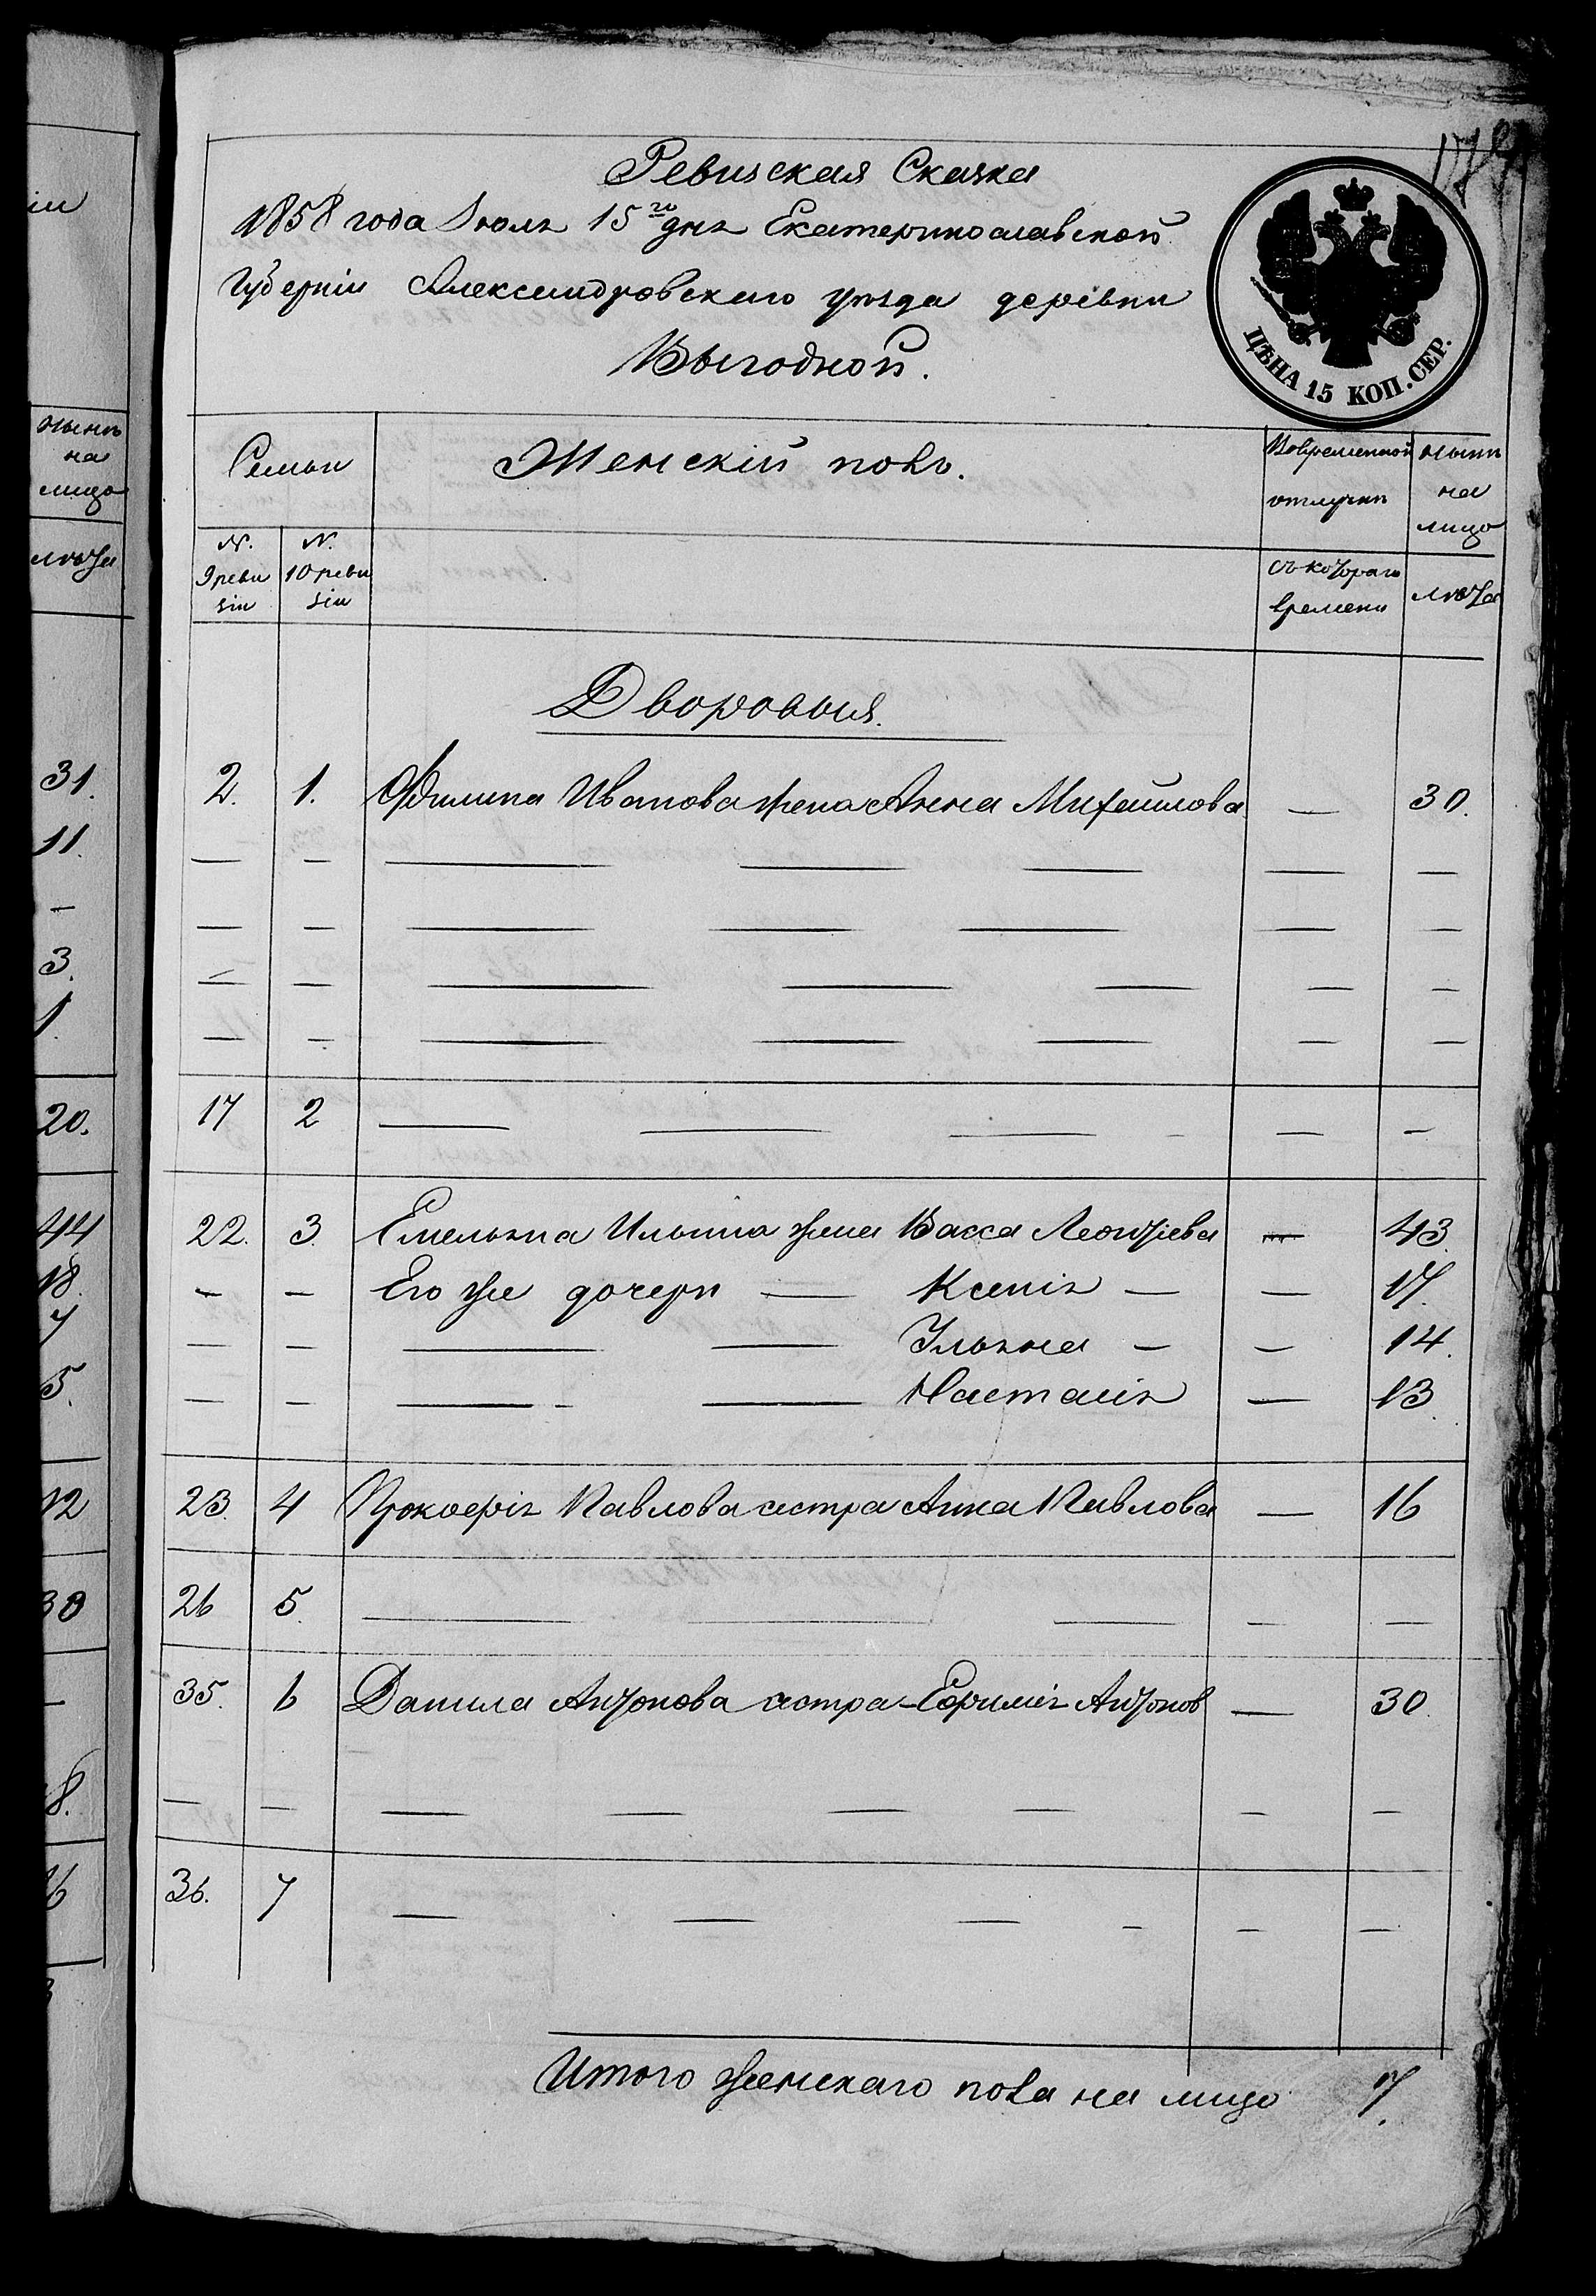 Ревизская Сказка
1858 года Іюля 15го дня Екатеринославской
Губерніи Александровскаго уѣзда деревни
Выгодной.
ЦѢНА 15 КОП. СЕР.
Семьи
Женскій полъ.
Вовременной отлучкѣ
нынѣ на лицо
N. 9 ревизіи
N. 10 ревизіи
съ котораго времени
лѣта
Дворовыя.
2. 1. Филипа Иванова жена Анна Михайлова — 30.
— — — — — — —
— — — — — — —
— — — — — — —
— — — — — — —
17 2 — — — — —
22. 3. Емельяна Ильина жена Васса Леонтіева — 43.
— — Его же дочери — Ксенія — — 17.
— — — — Ульяна — — 14.
— — — — Настасія — 13.
23. 4 Прокофія Павлова сестра Анна Павлова — 16
26 5. — — — — —
35. 6 Данила Антонова сестра Ефимія Антонов — 30.
— — — — — — — —
36. 7 — — — — — —
Итого женскаго пола на лицо 7.
нынѣ
на
лицо
лѣта
31.
11.
—
3.
1.
20.
44
18.
7
5.
12
30
—
8.
6